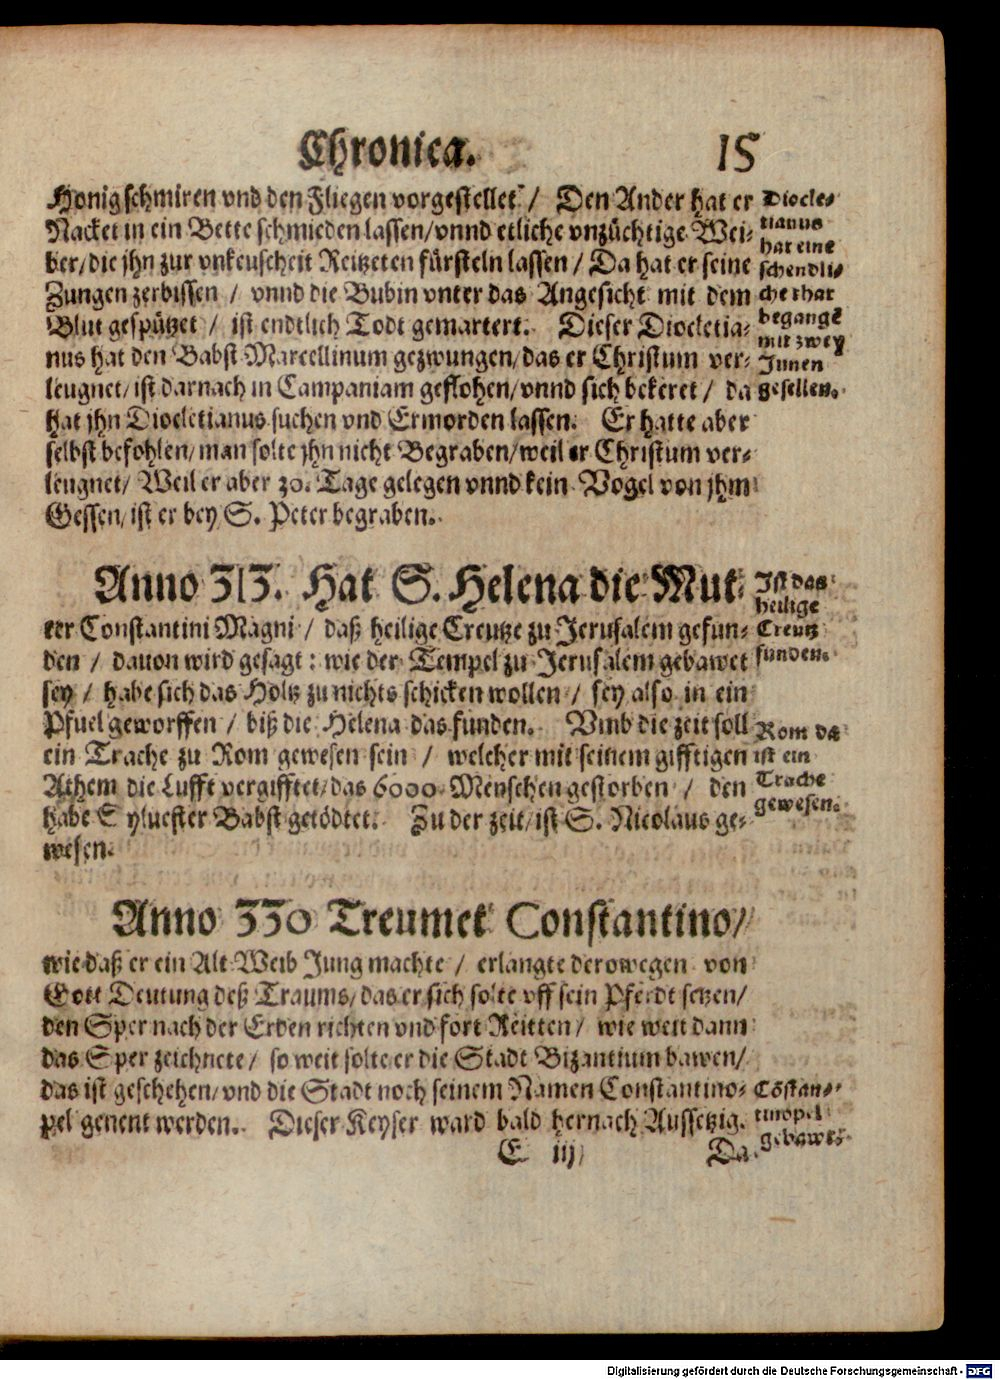 Chronica. 15
Honig schmiren vnd den Fliegen vorgestellet / Den Ander hat er
Nacket in ein Bette schmieden lassen/vnnd etliche vnzüchtige Wei-
ber/die jhn zur vnkeuscheit Reitzeten fürsteln lassen / Da hat er seine
Zungen zerbissen / vnnd die Bubin vnter das Angesicht mit dem
Blut gespützet / ist endtlich Todt gemartert. Dieser Diocletia-
nus hat den Babst Marcellinum gezwungen/das er Christum ver-
leugnet/ist darnach in Campaniam geflohen/vnnd sich bekeret / da
hat jhn Diocletianus suchen vnd Ermorden lassen. Er hatte aber
selbst befohlen/man solte jhn nicht Begraben/weil er Christum ver-
leugnet/ Weil er aber 30. Tage gelegen vnnd kein Vogel von jhm
Gessen/ist er bey S. Peter begraben.
Diocle-
tianus
hat eine
schendli-
che that
begange
mit zwey
Jungen
gesellen.
Anno 313. Hat S. Helena die Mut-
ter Constantini Magni / daß heilige Creutze zu Jerusalem gefun-
den / dauon wird gesagt: wie der Tempel zu Jerusalem gebawet
sey / habe sich das Holtz zu nichts schicken wollen / sey also in ein
Pfuel geworffen / biß die Helena das funden. Vmb die zeit soll
ein Trache zu Rom gewesen sein / welcher mit seinem gifftigen
Athem die Lufft vergifftet/das 6000. Menschen gestorben / den
habe Syluester Babst getödtet. Zu der zeit/ist S. Nicolaus ge-
wesen.
Ist das
heilige
Creutz
funden.
Rom da
ist ein
Trache
gewesen.
Anno 330 Treumet Constantino/
wie daß er ein Alt Weib Jung machte / erlangte derowegen von
Gott Deutung deß Traums/das er sich solte vff sein Pferdt setzen/
den Sper nach der Erden richten vnd fort Reitten / wie weit dann
das Sper zeichnete / so weit solte er die Stadt Bizantium bawen/
das ist geschehen/vnd die Stadt noch seinem Namen Constantino-
pel genent werden. Dieser Keyser ward bald hernach Aussetzig.
Cōstan-
tinopel
gebawet
C iij Da
Digitalisierung gefördert durch die Deutsche Forschungsgemeinschaft - DFG